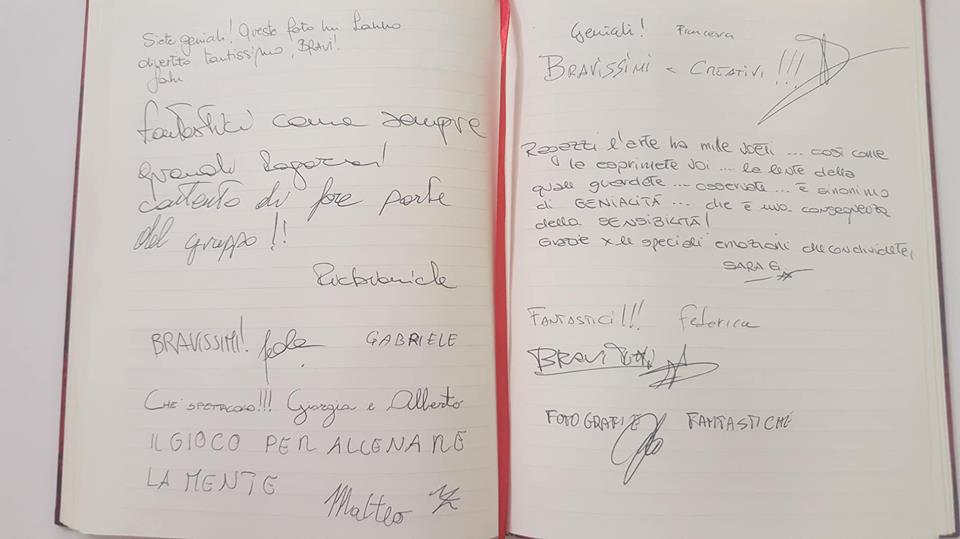 Siete geniali! Queste foto mi hanno
divertito tantissimo, BRAVI!
fantastici come sempre
grandi ragazzi!
contento di fare parte
del gruppo!!
BRAVISSIMI! GABRIELE
CHE SPETTACOLO!!! Giorgia e Alberto
IL GIOCO PER ALLENARE
LA MENTE
Matteo
Geniali! Francesca
BRAVISSIMI e CREATIVI!!!
Ragazzi l'arte ha mille volti ... così come
la esprimete voi ... la lente della
quale guardate ... osservate ... è sinonimo
di GENIALITÀ ... che è una conseguenza
della SENSIBILITÀ!
Grazie x le speciali emozioni che condividete,
SARA G
FANTASTICI!!! Federica
BRAVI
FOTOGRAFIE FANTASTICHE